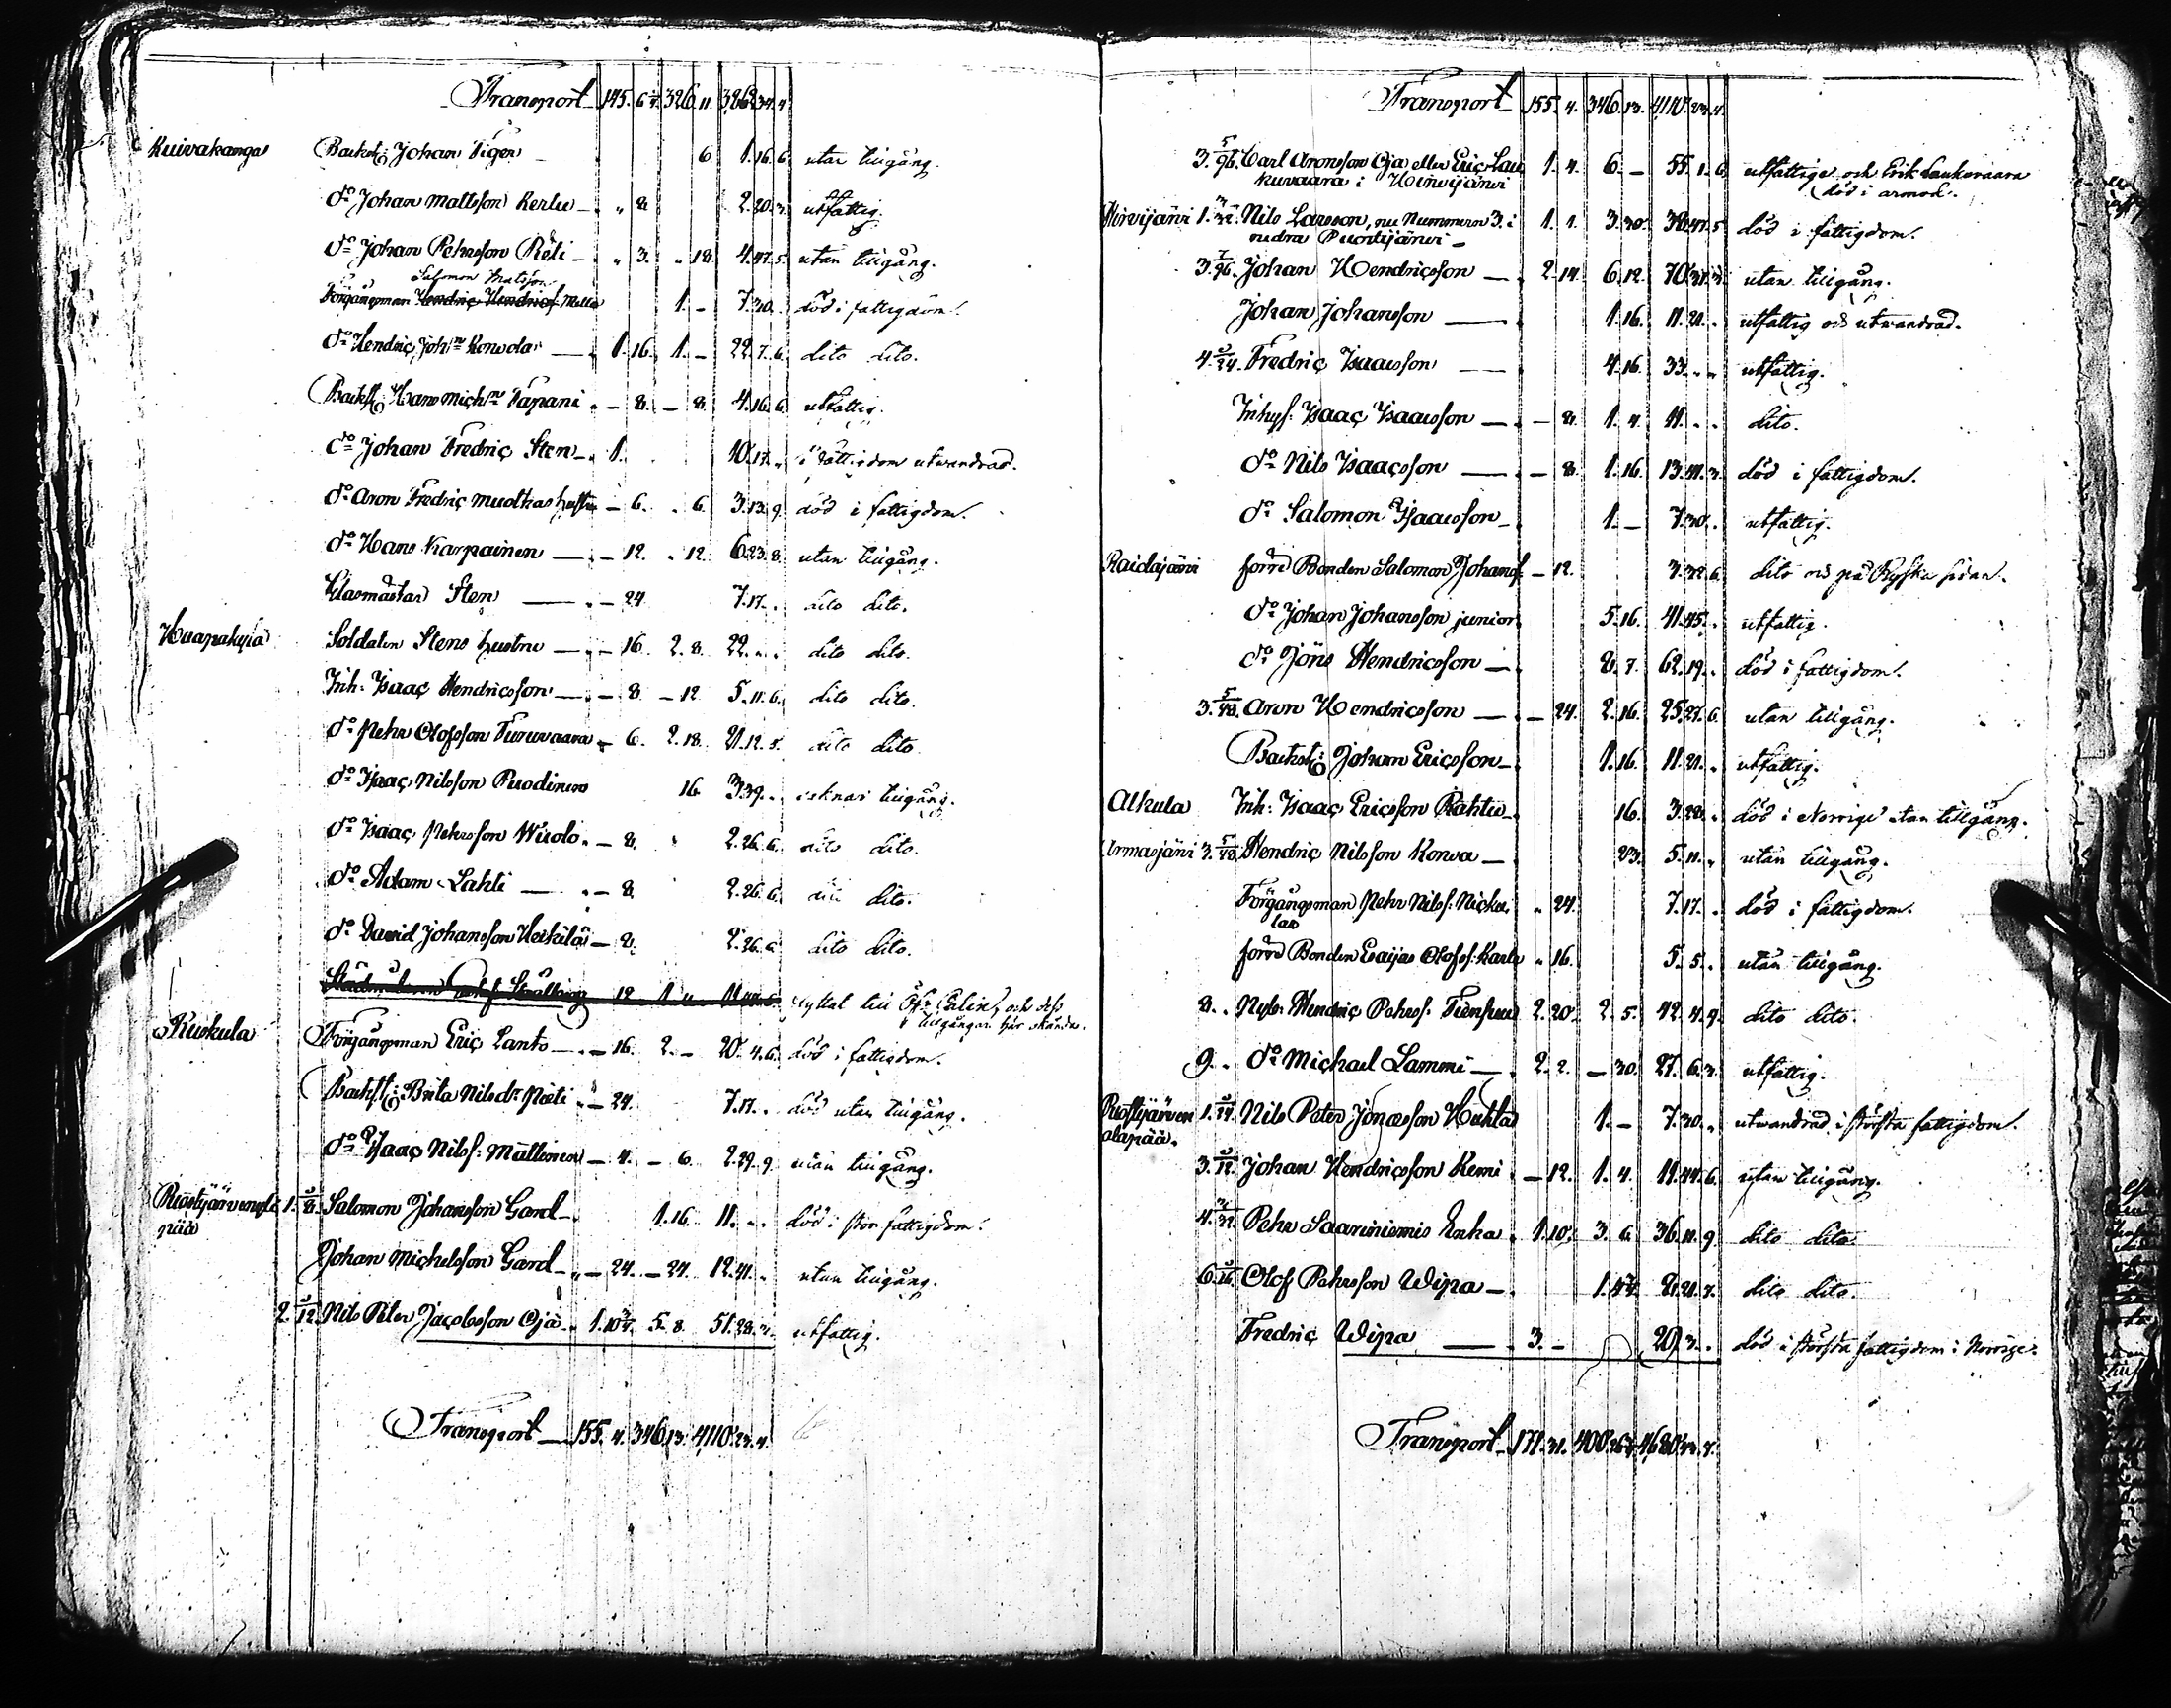 Transport 145. 6 326. 11. 3,262. 34. 4.
Kuivakangas Backst: Johan Tiger 6 1. 16. 6. utan tillgång.
do Johan Mattsson Kerlu - " 8. 2. 20. 3. utfattig.
do Johan Pehrsson Räti - " 3. " 18. 4. 47. 5. utan tillgång.
Salomon Matsson
Förgångsman Hendric Hendrics. Mella 1. - 7. 30. död i fattigdom.
do Hendric Johns Konvola - 1. 16. 1. - 22. 7. 6. dito dito.
Backst: Hans Michs Tapani - 8. - 8. 4. 16. 6. utfattig.
do Johan Fredric Sten - 1. 10. 17. " i fattigdom utwandrad.
do Aron Fredric Muotkas hustru - 6. . 6. 3. 13. 9. död i fattigdom.
do Hans Karpainen - 12. " 12. 6. 23. 8. utan tillgång.
Klasmästar Sten - 24. 7. 17. . dito dito.
Haapakylä Soldaten Stens hustru - 16. 2. 8. 22. " . dito dito.
Inh: Isaac Hendricsson - 8. - 12. 5. 11. 6. dito dito.
do Pehr Olofsson Turuvaara - 6. 2. 18. 21. 12. 5. dito dito
do Isaac Nilsson Puodinen 16. 3. 39. . saknar tillgång.
do Isaac Pehrsson Wuolo - 8. 2. 26. 6. dito dito.
do Adam Lahti - 8. 2. 26. 6. dito dito.
do David Johansson Heikilä - 8. 2. 26. 6. dito dito.
12. 1. 11. flyttat till och dess
tillgångar här okända.
Ruskula Förgångsman Eric Lanto - 16. 2. - 20. 4. 6. död i fattigdom.
Backst: Brita Nilsdr Päti - 24. 7. 17. . död utan tillgång.
do Isaac Nilss: Mällinen - 4. - 6. 2. 29. 9. utan tillgång.
1. 5/8. Salomon Johansson Gard - 1. 16. 11. " . död i stor fattigdom.
pää
Johan Michelsson Gard - 24. - 24. 12. 41. . utan tillgång.
2. 5/12. Nils Peter Jacobsson Oja 1. 10 5. 8. 51. 28. 3. utfattig.
Transport 155. 4. 346. 13. 4,110. 23. 4.
Transport 155. 4. 346. 13. 4,110. 23. 4.
3. 5/96. Carl Aronsson Oja eller Eric Lau 1. 4. 6. - 55. 1. 6. utfattige och Erik Laukuvaara
kuvaara i Hirvijärvi död i armod.
Hirvijärvi 1. 3/32. Nils Larsson, nu Nummern 3. i 1. 1. 3. 30. 36. 47. 5. död i fattigdom.
nedra Puostijärvi -
3. 7/96. Johan Hendricsson - 2. 14. 6. 12. 70. 31. 3. utan tillgång.
Johan Johansson - 1. 16. 11. 21. . utfattig och utwandrad.
4. 5/24. Fredric Isaacsson - 4. 16. 33. " " utfattig.
Inhys: Isaac Isaacsson - 8. 1. 4. 11. . . dito.
do Nils Isaacsson - 8. 1. 16. 13. 41. 3. död i fattigdom.
do Salomon Isaacsson - 1. - 7. 30. . utfattig.
Raidajärvi förre Bonden Salomon Johanss. - 12. 3. 32. 6. dito och på Ryska sidan.
do Johan Johansson junior 5. 16. 41. 45. . utfattig.
do Jöns Hendricsson - 8. 7. 62. 19. . död i fattigdom.
3. 5/48. Aron Hendricsson - 24. 2. 16. 25. 27. 6. utan tillgång.
Backst: Johan Ericsson - 1. 16. 11. 21. . utfattig.
Alkula Inh: Isaac Ericsson Rahtu - 16. 3. 28. . död i Norrige utan tillgång.
Armasjärvi 3. 5/48. Hendric Nilsson Korva - 23. 5. 11. " utan tillgång.
Förgångsman Pehr Nilss. Nicku " 24. 7. 17. . död i fattigdom.
las
förre Bonden Esaijas Olofss. Karle " 16. 5. 5. . utan tillgång.
8. . Nyb: Hendric Pehrss. 2. 20. 2. 5. 42. 4. 9. dito dito.
9. . do Michael Lammi - 2. 2. - 30. 27. 6. 3. utfattig.
Puostijärven 1. 5/24. Nils Peter Jonasson Huhta 1. - 7. 30. . utwandrad i största fattigdom.
alapää.
3. 5/12. Johan Hendricsson Kemi - 12. 1. 4. 11. 44. 6. utan tillgång.
4. Pehr Saariniemis Enka . 1. 10. 3. 6. 36. 11. 9. dito dito
6. 5/16. Olof Pehrsson Wipa - 1. 8. 21. 7. dito dito.
Fredric Wipa - 3. - 20. 3. . död i största fattigdom i Norrige.
Transport 171. 31. 400. 26 4,680. 42. 7.